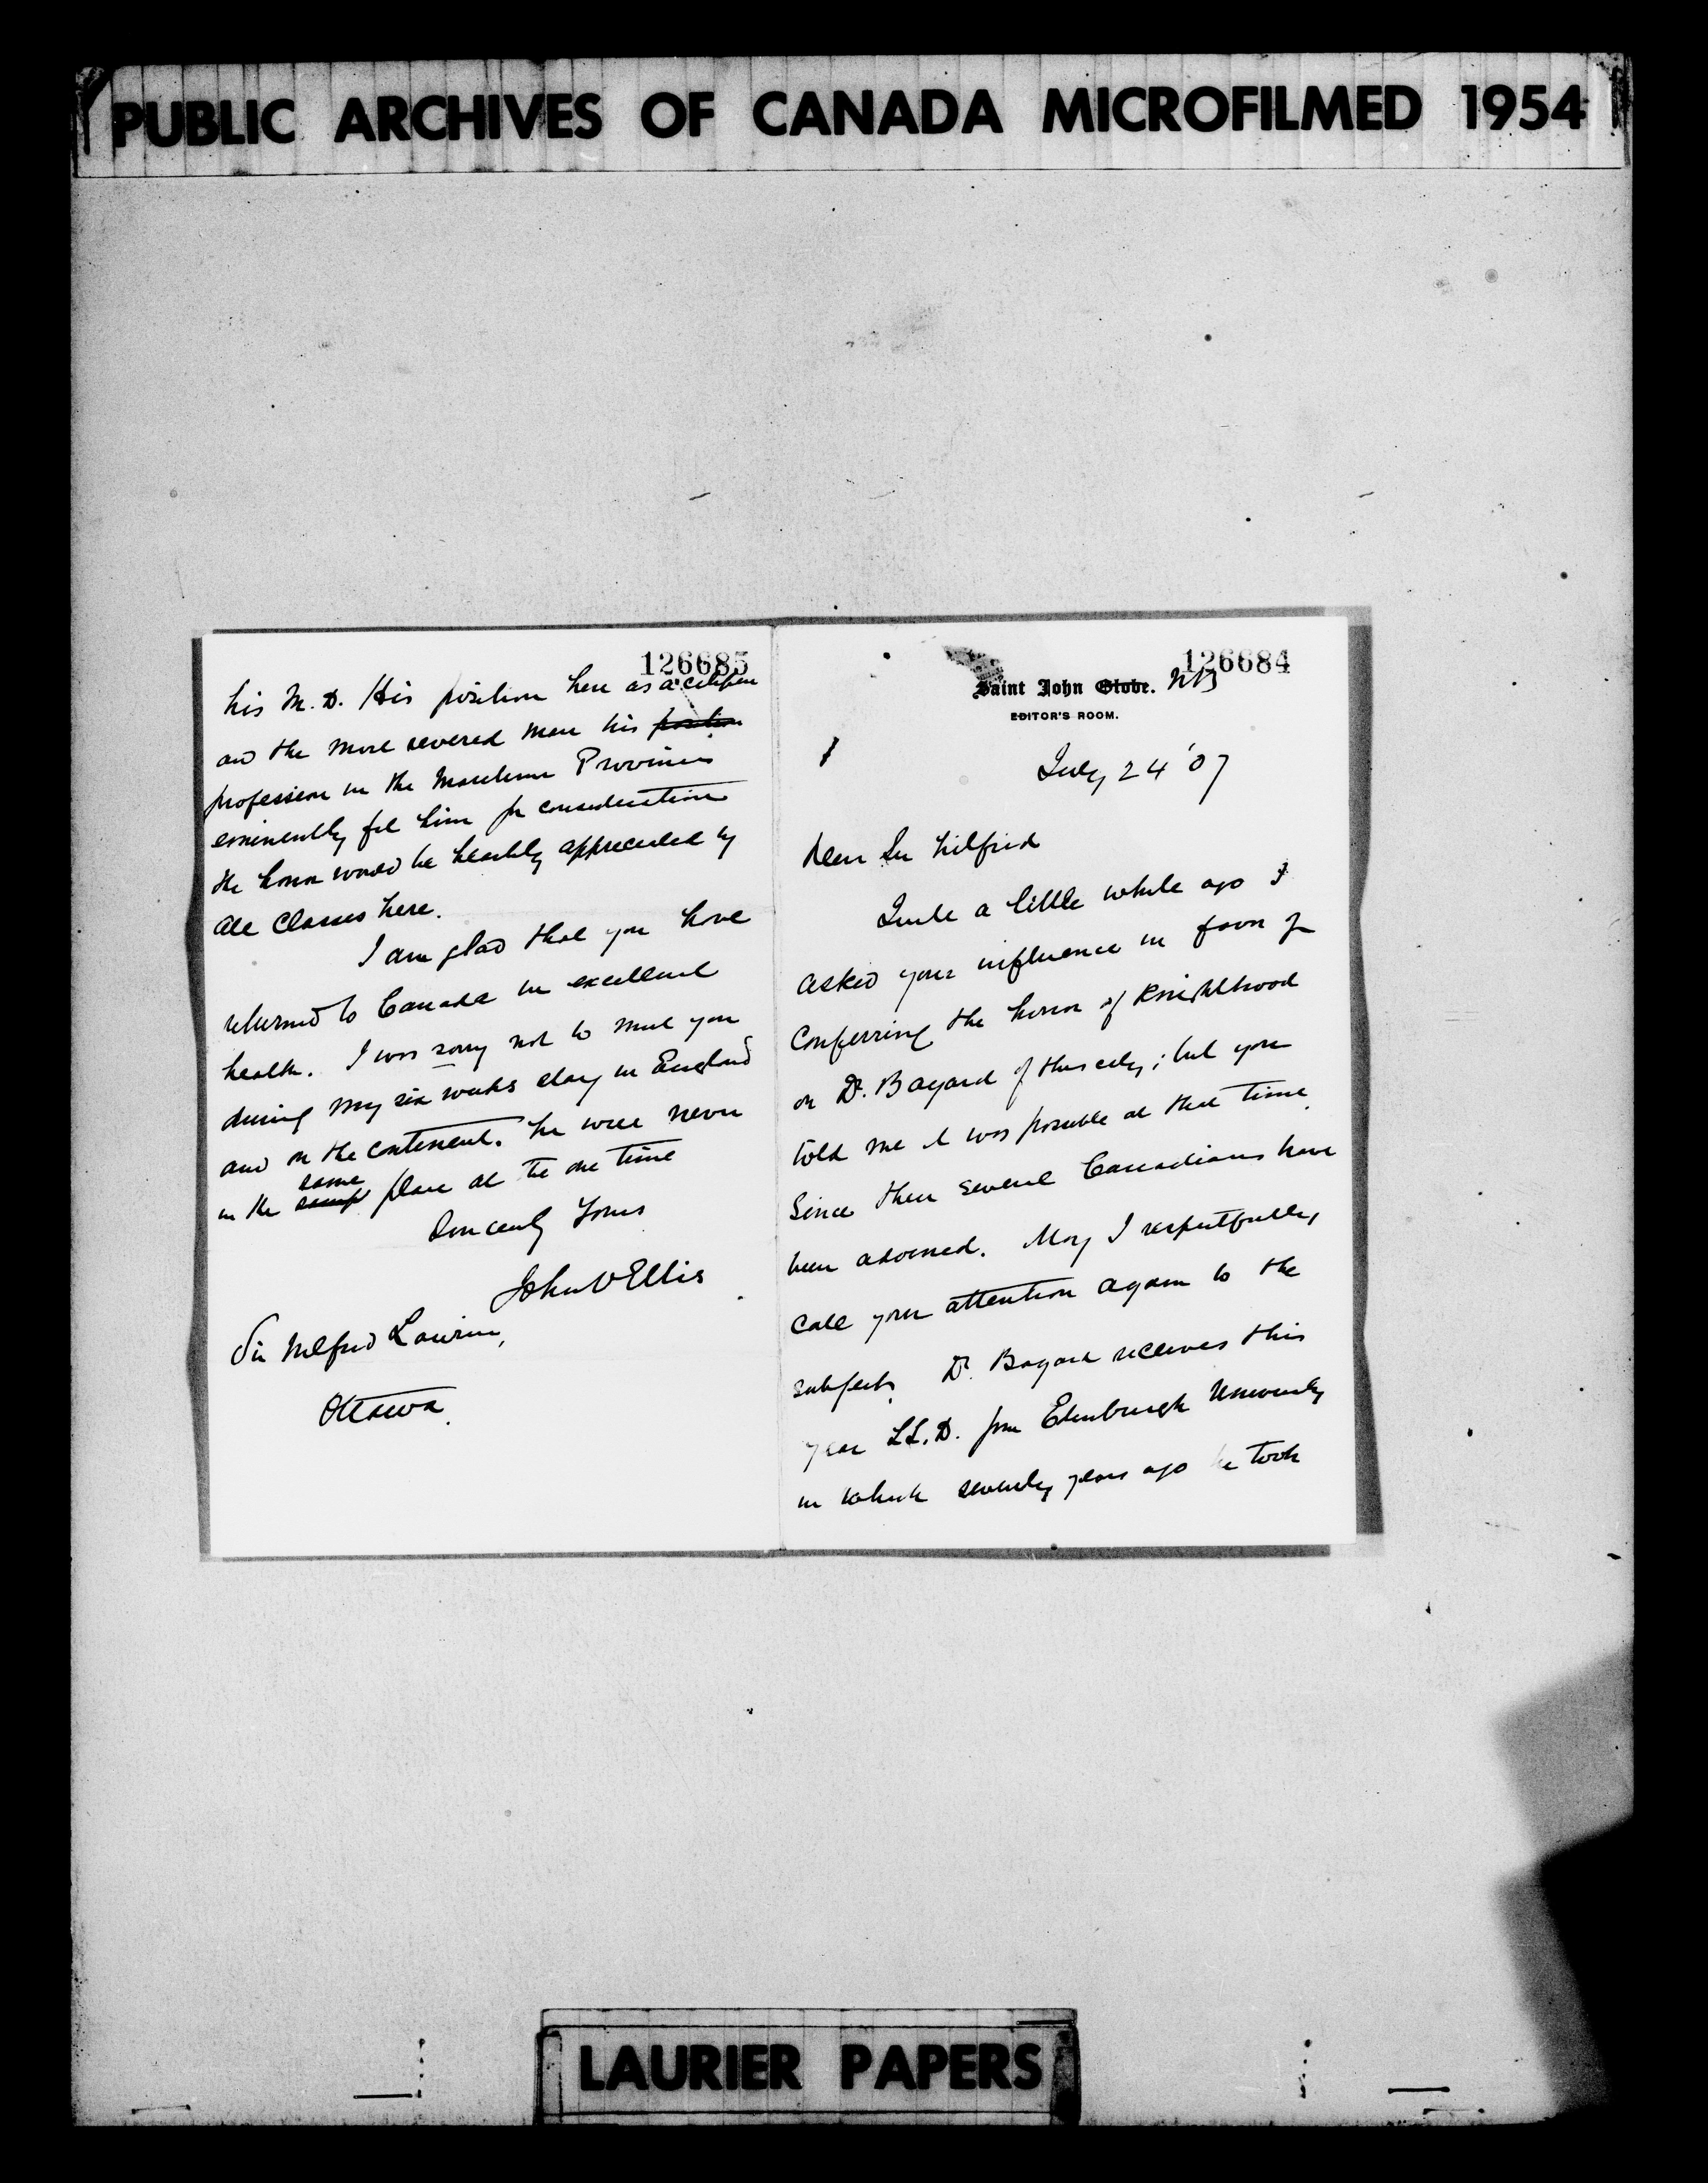 PUBLIC ARCHIVES OF CANADA MICROFILMED 1954
126684
Saint John Globe. NB
EDITOR'S ROOM.
July 24 '07
Dear Sir Wilfrid
Quite a little while ago I
asked your influence in favor of
Conferring the honor of Knighthood
on Dr. Bayard of this city; but you
told me it was possible at that time.
Since then several Canadians have
been adorned. May I respectfully
call your attention again to the
subject. Dr. Bayard receives this
year LL.D. from Edinburgh University
in which seventy years ago he took
126685
his M.D. His position here as a citizen
and the most revered man his position
profession in the Maritime Provinces
eminently fit him for consideration
the honor would be heartily appreciated by
all Classes here.
I am glad that you have
returned to Canada in excellent
health. I was sorry not to meet you
during my six weeks stay in England
and on the continent. We were never
same
in the place at the one time
Sincerely Yours
John V Ellis
Sir Wilfrid Laurier,
Ottawa.
LAURIER PAPERS